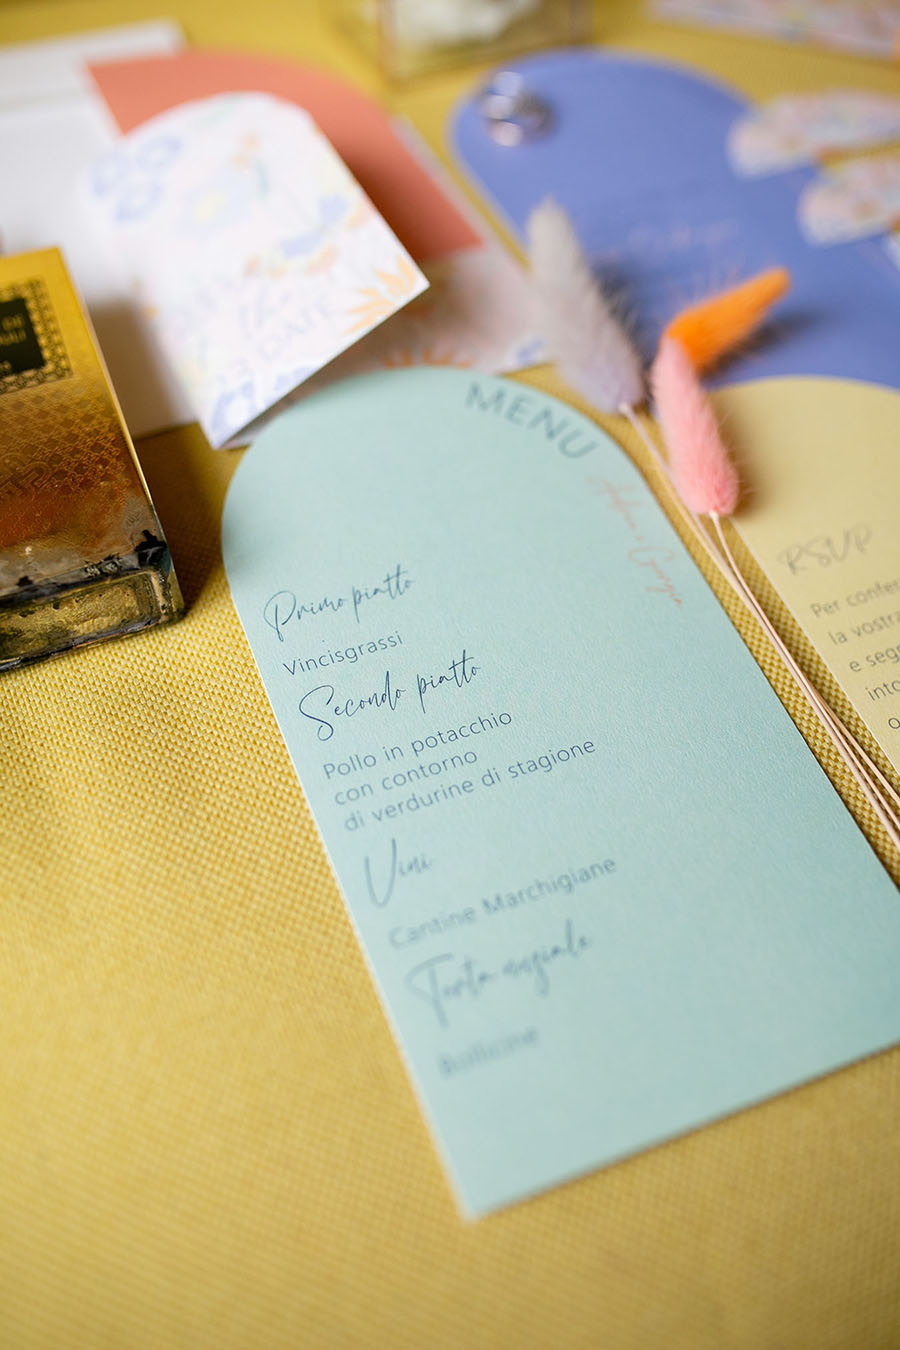 MENU
Primo piatto
Vincisgrassi
Secondo piatto
Pollo in potacchio
con contorno
di verdurine di stagione
Vini
Cantine Marchigiane
Torta nuziale
Bollicine
RSVP
Per confer
la vostra
e segn
into
DATE